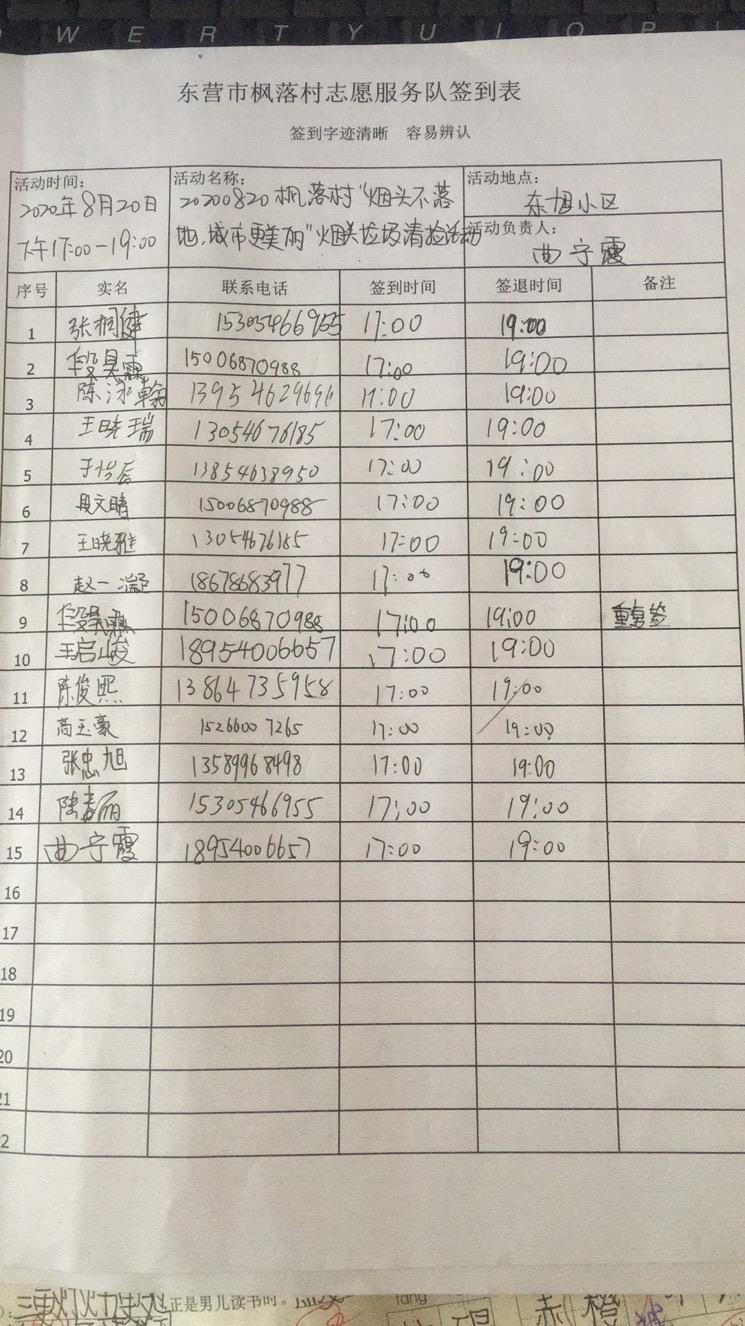 W E R T Y U I O P
东营市枫落村志愿服务队签到表
签到字迹清晰 容易辨认
活动时间: 2020年8月20日
下午17:00-19:00
活动名称: 20200820枫落村"烟头不落
地,城市更美丽"烟头垃圾清捡活动
活动地点: 东旭小区
活动负责人: 曲宁霞
序号 实名 联系电话 签到时间 签退时间 备注
1 张桐健 15305466955 17:00 19:00
2 段昊霖 15006870988 17:00 19:00
3 陈泳翰 13954629696 17:00 19:00
4 王晓瑞 13054676185 17:00 19:00
5 于怡辰 13854638950 17:00 19:00
6 段文晴 15006870988 17:00 19:00
7 王晓雅 13054676185 17:00 19:00
8 赵一凝 18678683977 17:00 19:00
9 段昊霖 15006870988 17:00 19:00 重复签
10 王启峻 18954006657 17:00 19:00
11 陈俊熙 13864735958 17:00 19:00
12 高玉豪 15266007265 17:00 19:00
13 张忠旭 13589968498 17:00 19:00
14 陈春丽 15305466955 17:00 19:00
15 曲宁霞 18954006657 17:00 19:00
16
17
18
19
20
21
2
正是男儿读书时。
fang
赤 橙